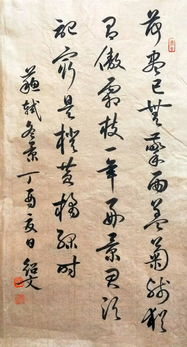 荷尽已无擎雨盖菊残犹
有傲霜枝一年好景君须
记最是橙黄橘绿时
苏轼冬景丁酉夏日绍文